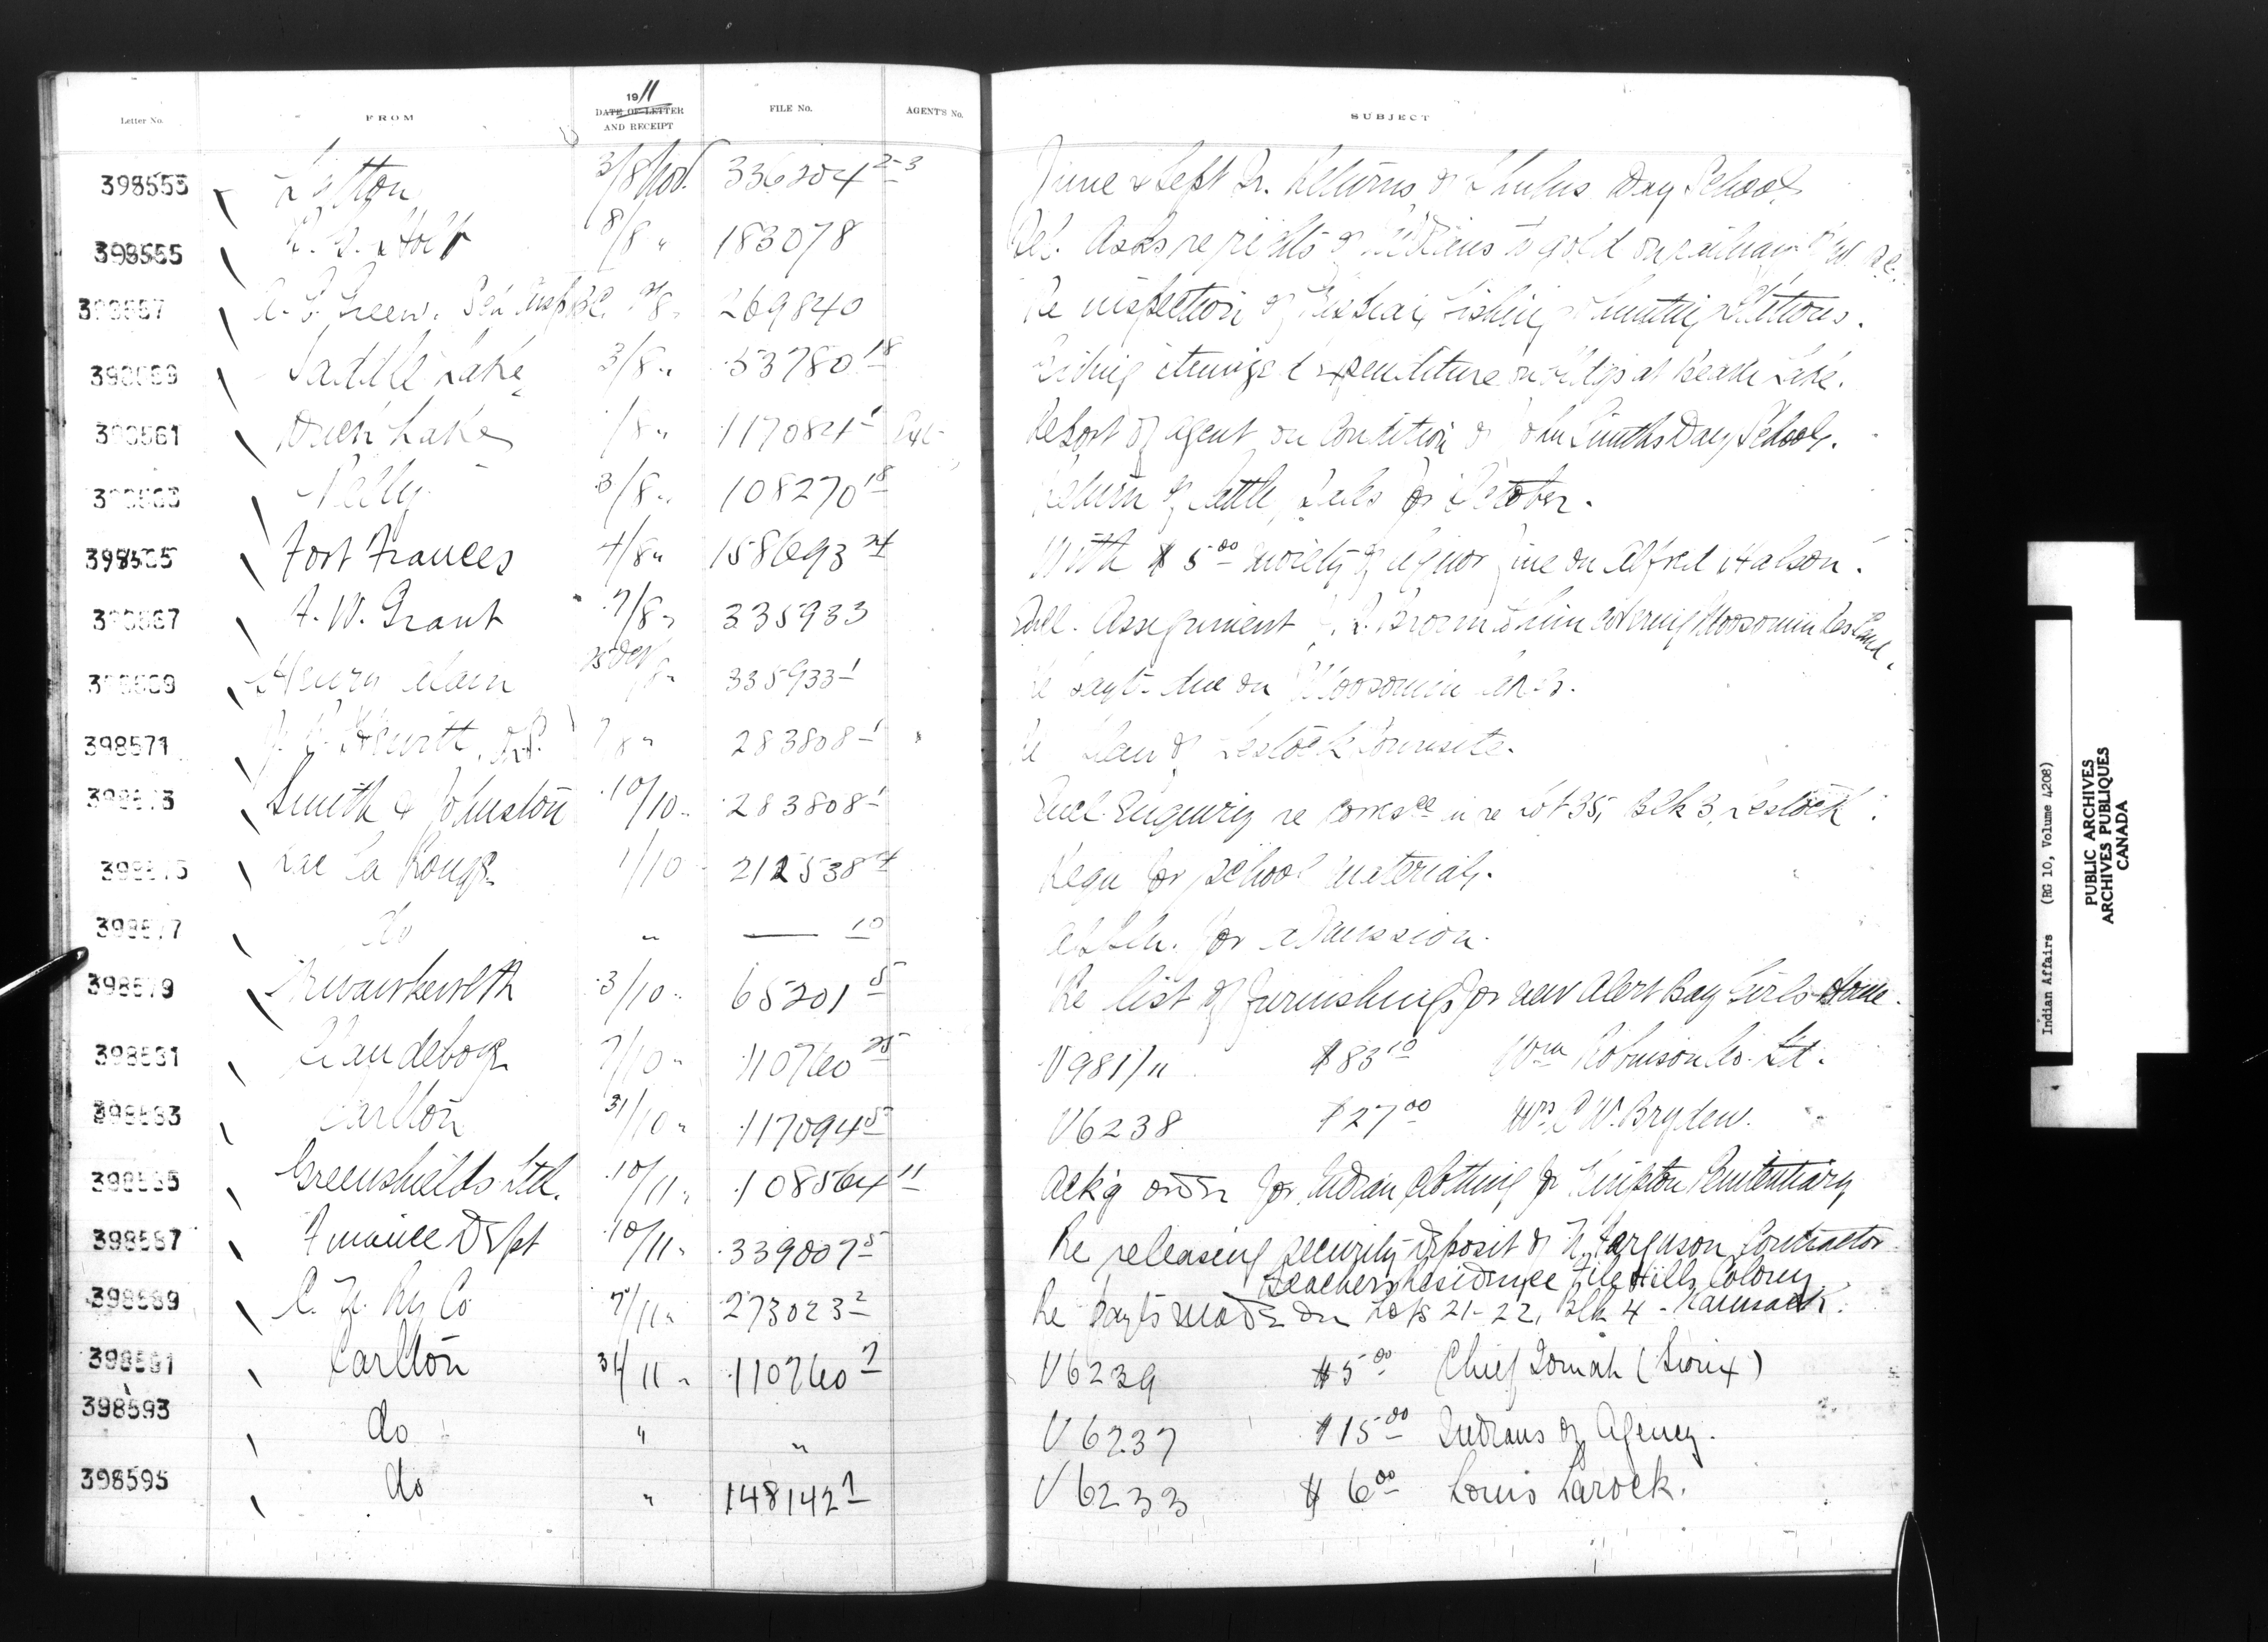 Letter No. FROM 1911 DATE OF LETTER AND RECEIPT FILE No. AGENT'S No. SUBJECT
398553 Lytton 3/8 Nov. 336204 2-3 June & Sept Qr. Returns of Shulus Day School
398555 8/8 " 183078 Tel. Asks re rights of Indians to gold on
398557 A. Green. Sch. Insp. B.C. /8 269840 Re inspection of fishing & hunting Stations.
398559 Saddle Lake 3/8 " 53780 18 itemized expenditure on bldgs at Lake.
398561 Duck Lake /8 " 117084 1 Report of agent on Condition of John Smiths Day School.
398563 Pelly 3/8 " 108270 18 Return of Cattle Sales for October.
398565 Fort Frances 4/8 " 158693 With $5 00 moiety of liquor fine on Alfred
398567 A. W. Grant 7/8 " 335933 Assignment to him covering Moosomin Res Land.
398569 Henry 25 Oct /8 " 335933 1 Re payt. due on Moosomin
398571 Hewitt 7/8 " 283808 1 Re Plan of Lestock Townsite.
398573 Smith & Johnston 10/10 " 283808 1 Encl. Enquiry re corresce in re Lot 35, Blk 3, Lestock.
398575 Lac la Ronge 1/10 212538 Requ for school material.
398577 do " — 10 Appln. for admission.
398579 Kwawkewlth 3/10 " 65201 5 Re list of furnishings for new Alert Bay Girls Home.
398581 Clandeboye 7/10 " 110760 25 V981/11 $83 10 Wm Robinson Co. Lt.
398583 Carlton 31/10 " 117094 5 V6238 $27 00 W. Bryden.
398585 Greenshields Ltd. 10/11 " 108564 11 Ack'g order for Indian clothing for Kingston Penitentiary
398587 Finance Dept 10/11 " 339007 5 Re releasing security deposit of Ferguson Contractor
Teachers Residence File Hills Colony.
398589 C. N. Ry Co 7/11 " 273023 2 Re payts made on Lots 21-22, Blk 4 - Kamsack.
398591 Carlton 31/11 " 110760 7 V6239 $5 00 Chief (Sioux)
398593 do " " V6237 $15 00 Indians of Agency.
398595 do " 148142 1 V6233 $6 00 Louis Larock.
Indian Affairs (RG 10, Volume 4208)
PUBLIC ARCHIVES
ARCHIVES PUBLIQUES
CANADA